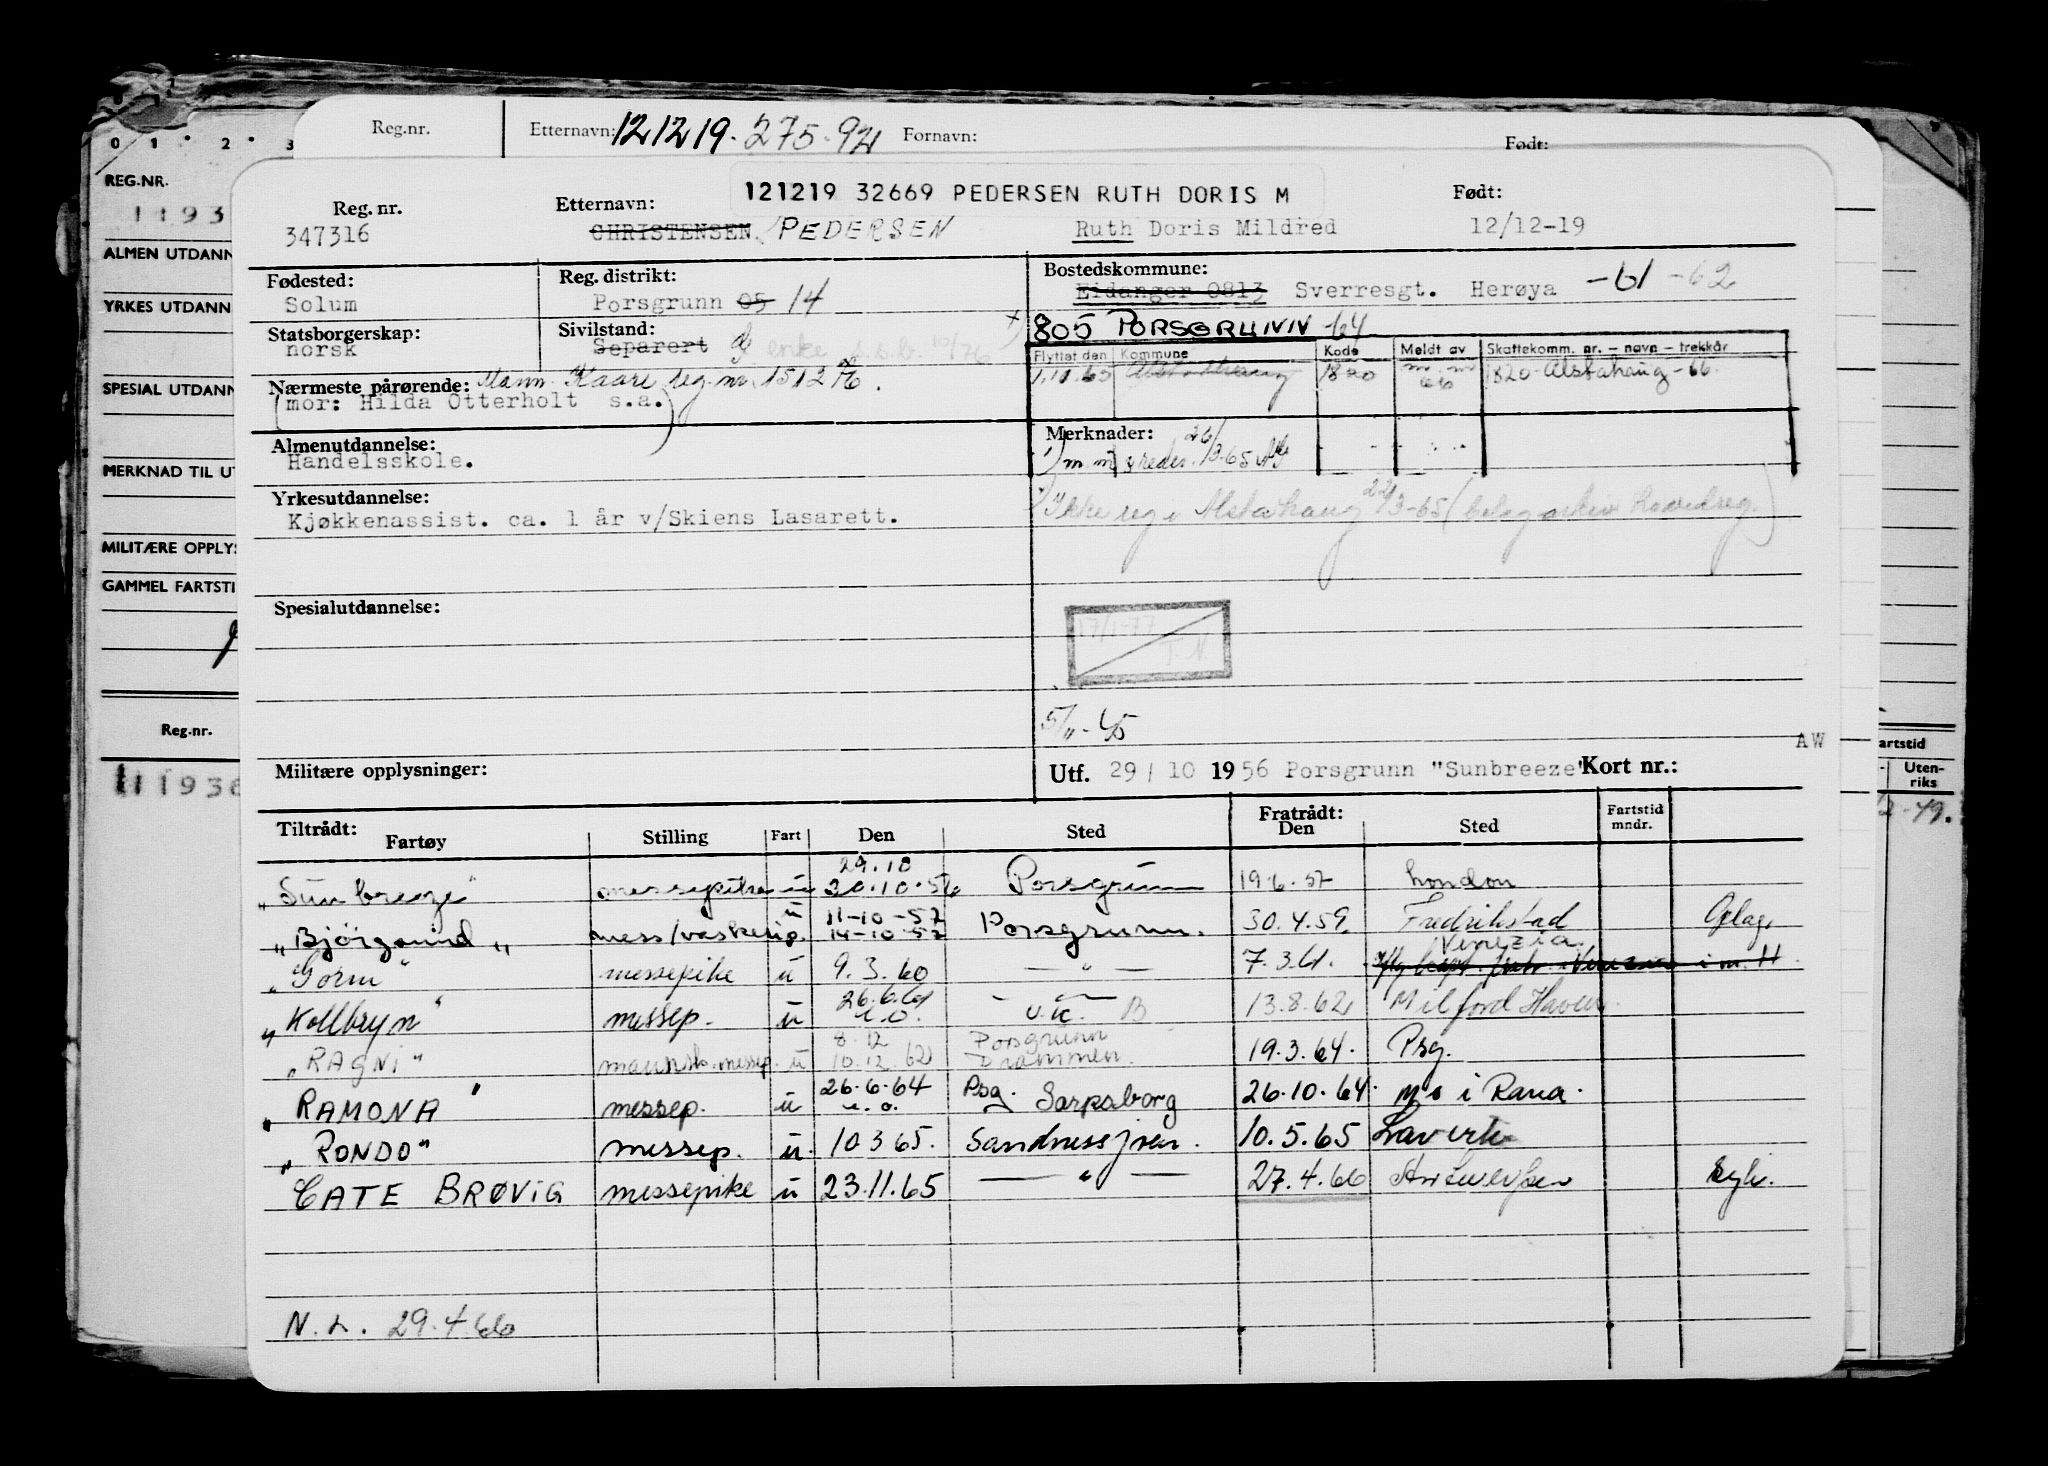 Reg.nr. Etternavn: 121219. 275.92 Fornavn: Født:
0 1 . 2 . 3
REG.NR.
1193
ALMEN UTDANN
YRKES UTDANN
SPESIAL UTDANN
MERKNAD TIL UT
MILITÆRE OPPLYS
GAMMEL FARTSTI
Reg.nr.
111936
artstid
Uten-
riks
2-49.
121219 32669 PEDERSEN RUTH DORIS M
Reg. nr. Etternavn: Født:
347316 CHRISTENSEN / PEDERSEN Ruth Doris Mildred 12/12-19
Fødested: Reg. distrikt: Bostedskommune:
Solum Porsgrunn 05 14 Eidanger 0813 Sverresgt. Herøya -61 -62
Statsborgerskap: Sivilstand: 805 PORSGRUNN -64
norsk Separert g enke s.s.b. 10/76
Flyttet den Kommune Kode Meldt av Skattekomm. nr. – navn – trekkår
1.11.65 Alstahaug 1820 m.m 66 1820-Alstahaug-66.
Nærmeste pårørende: Mann Kaare reg. nr. 151276.
(mor: Hilda Otterholt s.a.)
Almenutdannelse: Merknader:
Handelsskole.
Yrkesutdannelse: Ikke reg i Alstahaug 22/3-65 (belag arkiv hovedreg.)
Kjøkkenassist. ca. 1 år v/Skiens Lasarett.
Spesialutdannelse:
17/1-77
T.N.
5/11-65
AW
Militære opplysninger: Utf. 29 / 10 1956 Porsgrunn "Sunbreeze" Kort nr.:
Tiltrådt: Fratrådt: Fartstid
Fartøy Stilling Fart Den Sted Den Sted mndr.
29.10
"Sunbreeze" messepike u 30.10.56 Porsgrunn 19.6.57 London
11-10-57
"Bjørgsund" mess/vaskerip. u 14-10-57 Porsgrunn. 30.4.59. Fredrikstad Oplag.
"Gorm" messepike u 9.3.60 — " — 7.3.61. Venezia
"Kollbryn" messep. u 26.6.61 u.o. — " — U.K. B 13.8.62 Milford Haven
8.12 Porsgrunn
"RAGNI" messep. u 10.12.62 Drammen. 19.3.64. Psg.
"RAMONA" messep. u 26.6.64 u.o. Psg. Sarpsborg 26.10.64. Mo i Rana.
"RONDO" messep. u. 10 3 65. Sandnessjøen. 10.5.65
CATE BRØVIG messepike u 23.11.65 — " — 27.4.66 Antwerpen
N.L. 29.4.66